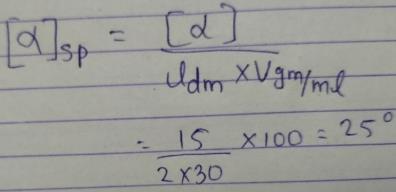 [α]sp = [α] / ldm × Vgm/ml
= 15 / 2×30 ×100 = 25°